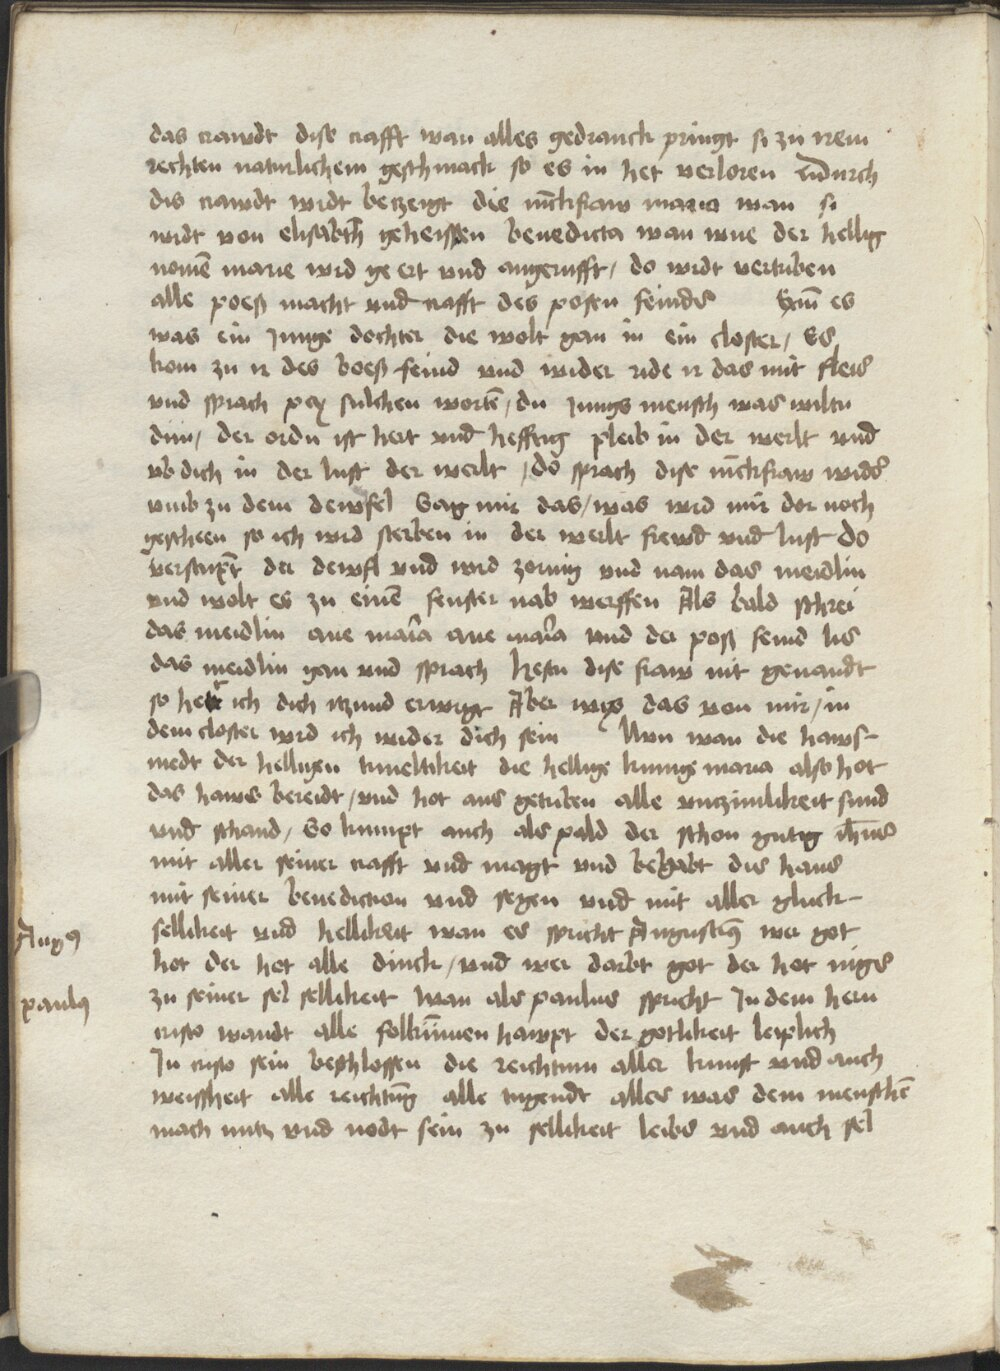 das crawdt dise crafft wan alles gedranck pringt si zu irem
rechten naturlichem geschmack so es in het verloren durch
dis crawdt wirdt betzeigt die iūckfraw maria wan si
wirdt von elisabeth geheissen benedicta wan wue der hellig
nomē marie wird ge ert vnd angerufft / do wirdt vertriben
alle poeß macht vnd crafft des posen feinds es
was ein junge dochter die wolt gan in ein closter / Es
kom zu ir des boeß feind vnd wider ride ir das mit fleis
vnd sprach sulchen wortē / du jungs mensch was wiltu
din / der ordn ist hert vnd hefftig pleib in der werlt vnd
vb dich in der lust der werlt / do sprach dise iūckfraw wids
vmb zu dem dewfel Sag mir das / was wird mir dor noch
gescheen so ich wird sterben in der werlt frewd vnd lust do
verstupt der dewfl vnd wird zornig vnd nam das meidlin
vnd wolt es zu einē fenster nab werffen Als bald schrei
das meidlin aue maria aue maria vnd der poß feind lis
das meidlin gan vnd sprach hestu dise fraw nit genandt
so het ich dich itzund erwrgt Aber wis das von mir / in
dem closter wird ich wider dich sein Nun wan die haws-
medt der helligen triueltikeit die hellige kunige maria also hot
das haws bereidt / vnd hot aus getriben alle vntzimlikeit sund
vnd schand / So kumpt auch als pald der schon gutig ih̄us
mit aller seiner crafft vnd magt vnd begabt dis haus
mit seiner benediction vnd segen vnd mit aller gluck-
sellikeit vnd hellikeit wan es spricht Augustin9 wer got
hot der hot alle dinck / vnd wer darbt got der hot nigs
zu seiner sel sellikeit wan als paulus spricht In dem hern
cristo wandt alle folkūmen hawpt der gotlikeit leiplich
In cristo sein beschlossen die reichtum aller kunst vnd auch
weissheit alle reichtūg alle tugendt alles was dem menschē
mach nutz vnd nodt sein zu sellikeit leibs vnd auch sel
Aug9
paul9